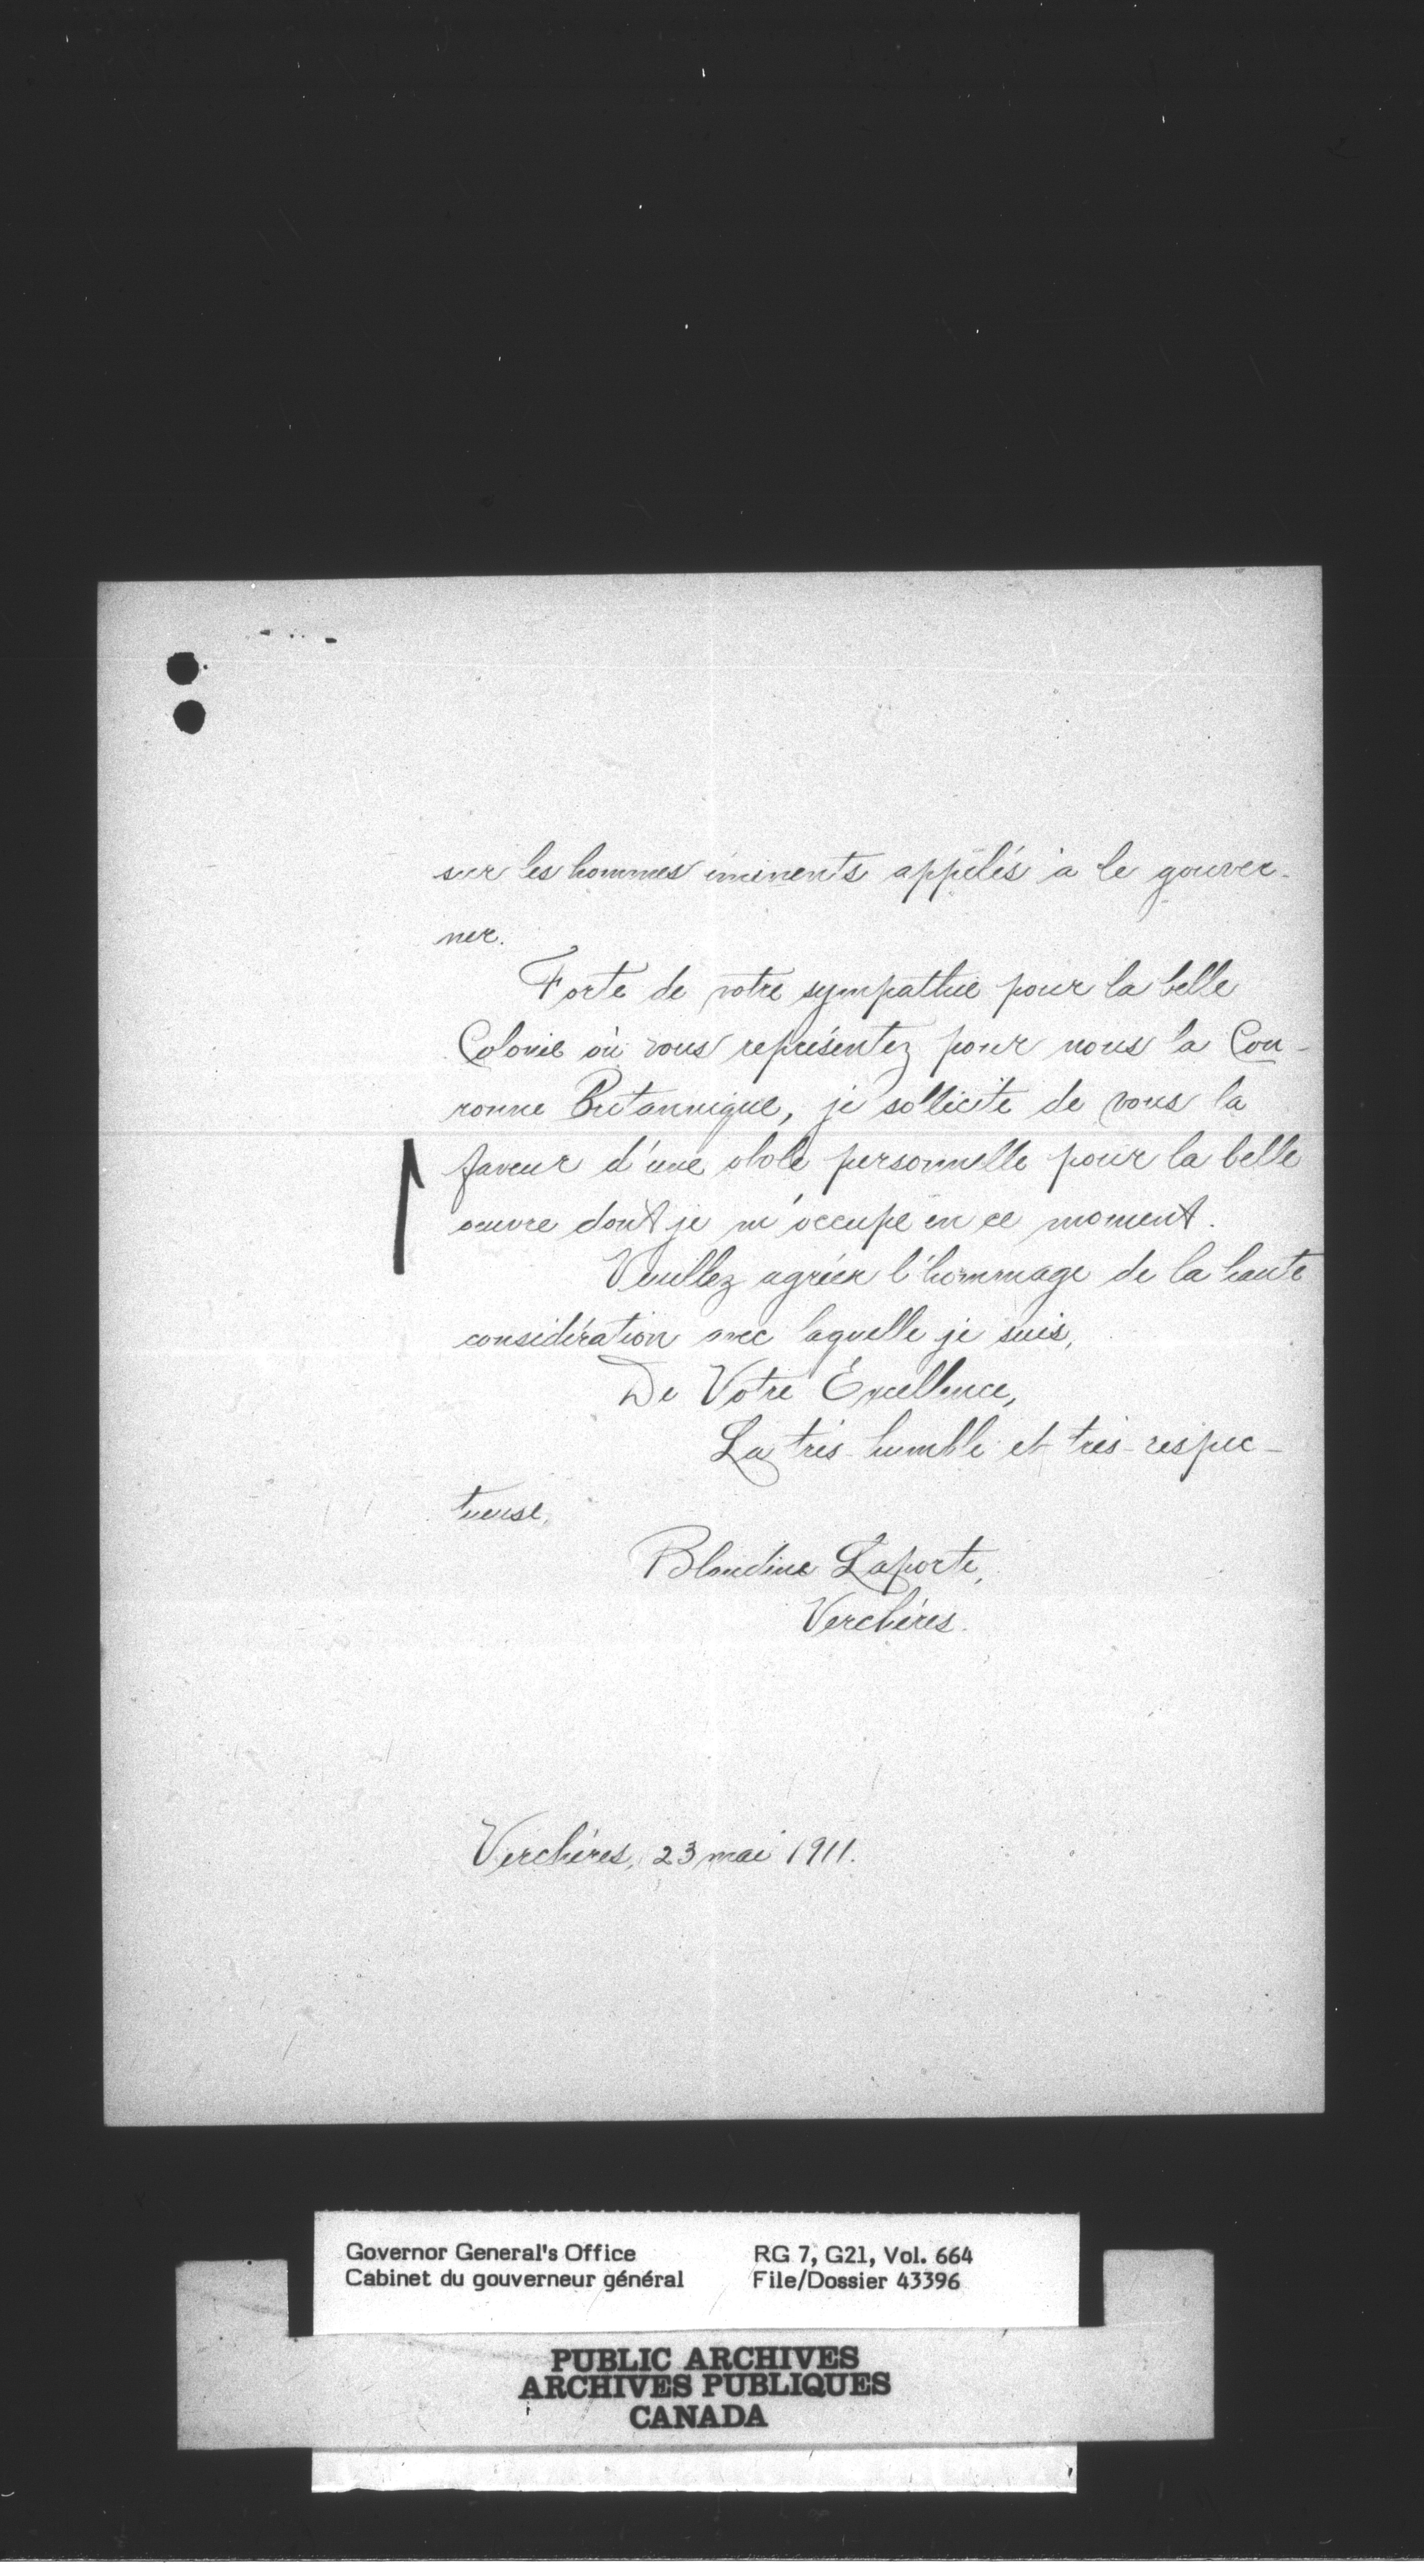 sur les hommes éminents appelés à le gouver-
ner.
Forte de votre sympathie pour la belle
Colonie où vous représentez pour nous la Cou-
ronne Britannique, je sollicite de vous la
faveur d'une obole personnelle pour la belle
œuvre dont je m'occupe en ce moment.
Veuillez agréer l'hommage de la haute
considération avec laquelle je suis,
De Votre Excellence,
La très-humble et très-respec-
tueuse,
Blandine Laporte,
Verchères.
Verchères, 23 mai 1911.
Governor General's Office RG 7, G21, Vol. 664
Cabinet du gouverneur général File/Dossier 43396
PUBLIC ARCHIVES
ARCHIVES PUBLIQUES
CANADA